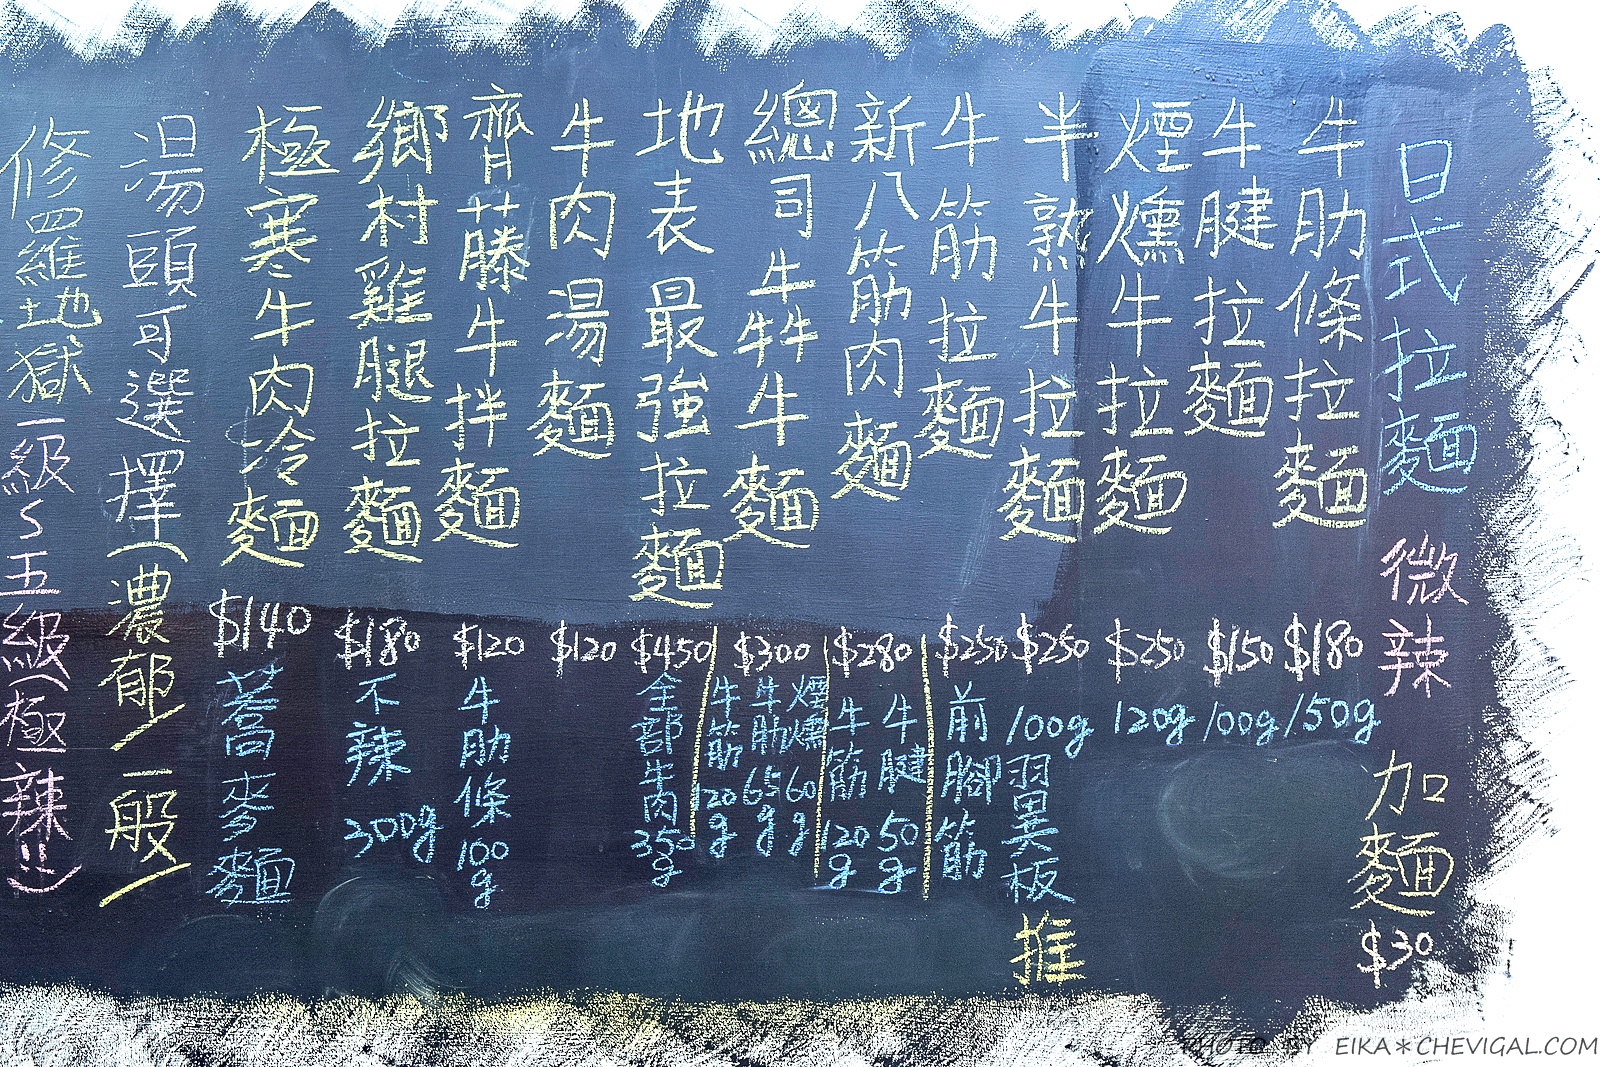 日式拉麵 微辣 加麵 $30
牛肋條拉麵 $180 150g
牛腱拉麵 $150 100g
煙燻牛拉麵 $250 120g
半熟牛拉麵 $250 100g 翼板 推
牛筋拉麵 $250 前腳筋
新八筋肉麵 $280 牛腱50g 牛筋120g
總司牛牪牛麵 $300 煙燻60g 牛肋65g 牛筋120g
地表最強拉麵 $450 全部牛肉350g
牛肉湯麵 $120
齊藤牛拌麵 $120 牛肋條100g
鄉村雞腿拉麵 $180 不辣 300g
極寒牛肉冷麵 $140 蕎麥麵
湯頭可選擇(濃郁/一般/
修羅地獄一級~五級(極辣!!)
PHOTO BY EIKA*CHEVIGAL.COM